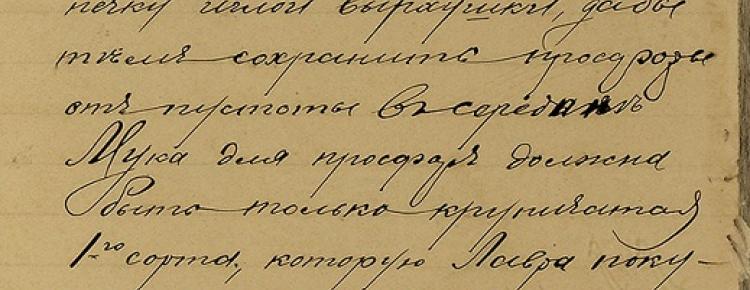 печку иглой вырѣушки, дабы
тѣмъ сохранить просфоры
отъ пустоты въ серединѣ
Мука для просфоръ должна
быть только крупичатая
1-го сорта, которую Лавра поку-